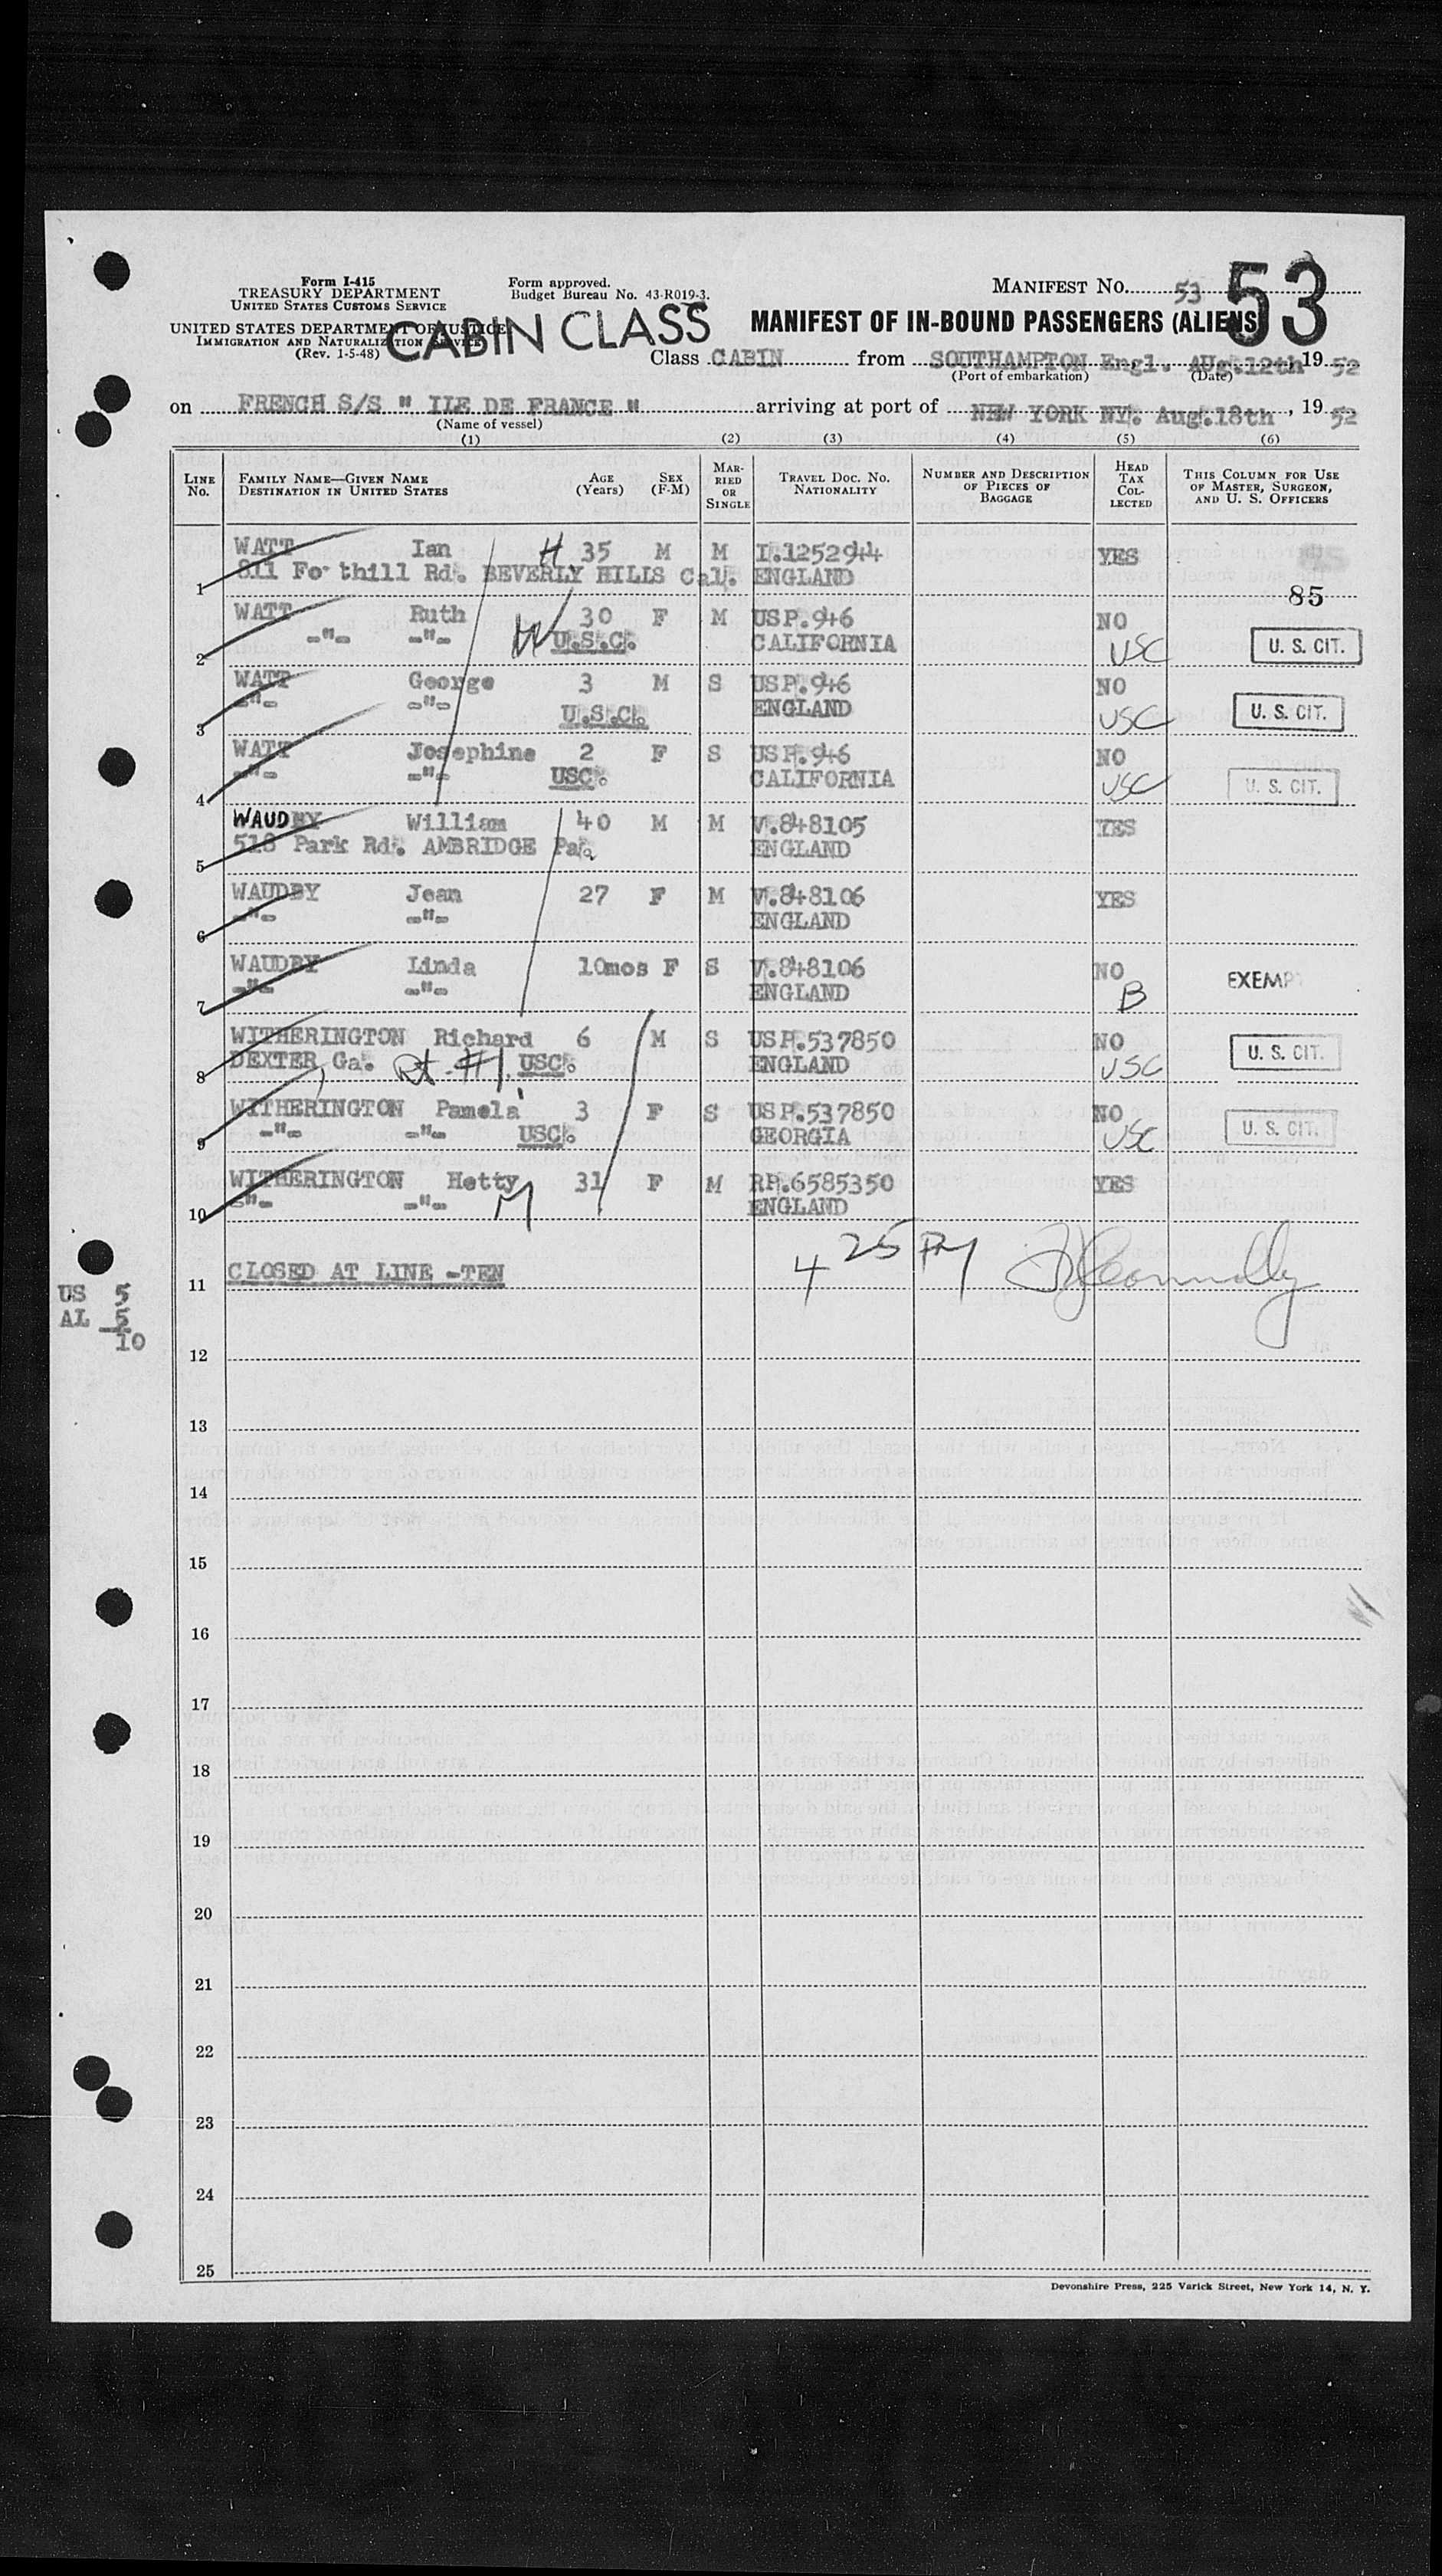 Form I-415
TREASURY DEPARTMENT
UNITED STATES CUSTOMS SERVICE
UNITED STATES DEPARTMENT OF JUSTICE
IMMIGRATION AND NATURALIZATION SERVICE
(Rev. 1-5-48)
Form approved.
Budget Bureau No. 43-R019-3.
CABIN CLASS
MANIFEST NO. 53
53
MANIFEST OF IN-BOUND PASSENGERS (ALIENS)
Class CABIN from SOUTHAMPTON Engl. AUg.12th 19 52
(Port of embarkation) (Date)
on FRENCH S/S " ILE DE FRANCE " arriving at port of NEW YORK NY. Aug.18th , 19 52
(Name of vessel)
(1) (2) (3) (4) (5) (6)
LINE No. FAMILY NAME—GIVEN NAME DESTINATION IN UNITED STATES AGE (Years) SEX (F-M) MARRIED OR SINGLE TRAVEL DOC. NO. NATIONALITY NUMBER AND DESCRIPTION OF PIECES OF BAGGAGE HEAD TAX COLLECTED THIS COLUMN FOR USE OF MASTER, SURGEON, AND U. S. OFFICERS
WATT Ian H 35 M M I.1252944 YES
1 811 Fo thill Rd. BEVERLY HILLS Cal. ENGLAND
85
WATT Ruth 30 F M USP.946 NO
2 -"- -"- W U.S.C. CALIFORNIA USC U. S. CIT.
WATT George 3 M S USP.946 NO
3 -"- -"- U.S.C. ENGLAND USC U. S. CIT.
WATT Josephine 2 F S USP.946 NO
4 -"- -"- USC. CALIFORNIA USC U. S. CIT.
WAUDBY William 40 M M V.848105 YES
5 518 Park Rd. AMBRIDGE Pa. ENGLAND
WAUDBY Jean 27 F M V.848106 YES
6 -"- -"- ENGLAND
WAUDBY Linda 10mos F S V.848106 NO
7 -"- -"- ENGLAND B EXEMP
WITHERINGTON Richard 6 M S USP.537850 NO
8 DEXTER, Ga. Rt. #1. USC. ENGLAND USC U. S. CIT.
WITHERINGTON Pamela 3 F S USP.537850 NO
9 -"- -"- USC. GEORGIA USC U. S. CIT.
WITHERINGTON Hetty 31 F M RP.6585350 YES
10 -"- -"- M ENGLAND
4 25 PM
11 CLOSED AT LINE -TEN
US 5
AL 5
10
12
13
14
15
16
17
18
19
20
21
22
23
24
25
Devonshire Press, 225 Varick Street, New York 14, N. Y.